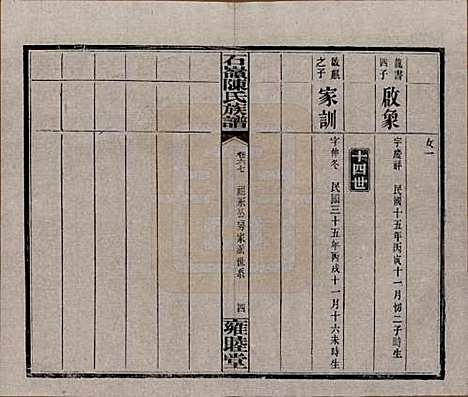 女一
龍書四子
啟象
字慶祥 民國十五年丙寅十一月初二子時生
十四世
啟麒之子
家訓
字仲冬 民國三十五年丙戌十一月十六未時生
石嶺陳氏族譜
卷六七
公房家啟世系
四
雍睦堂